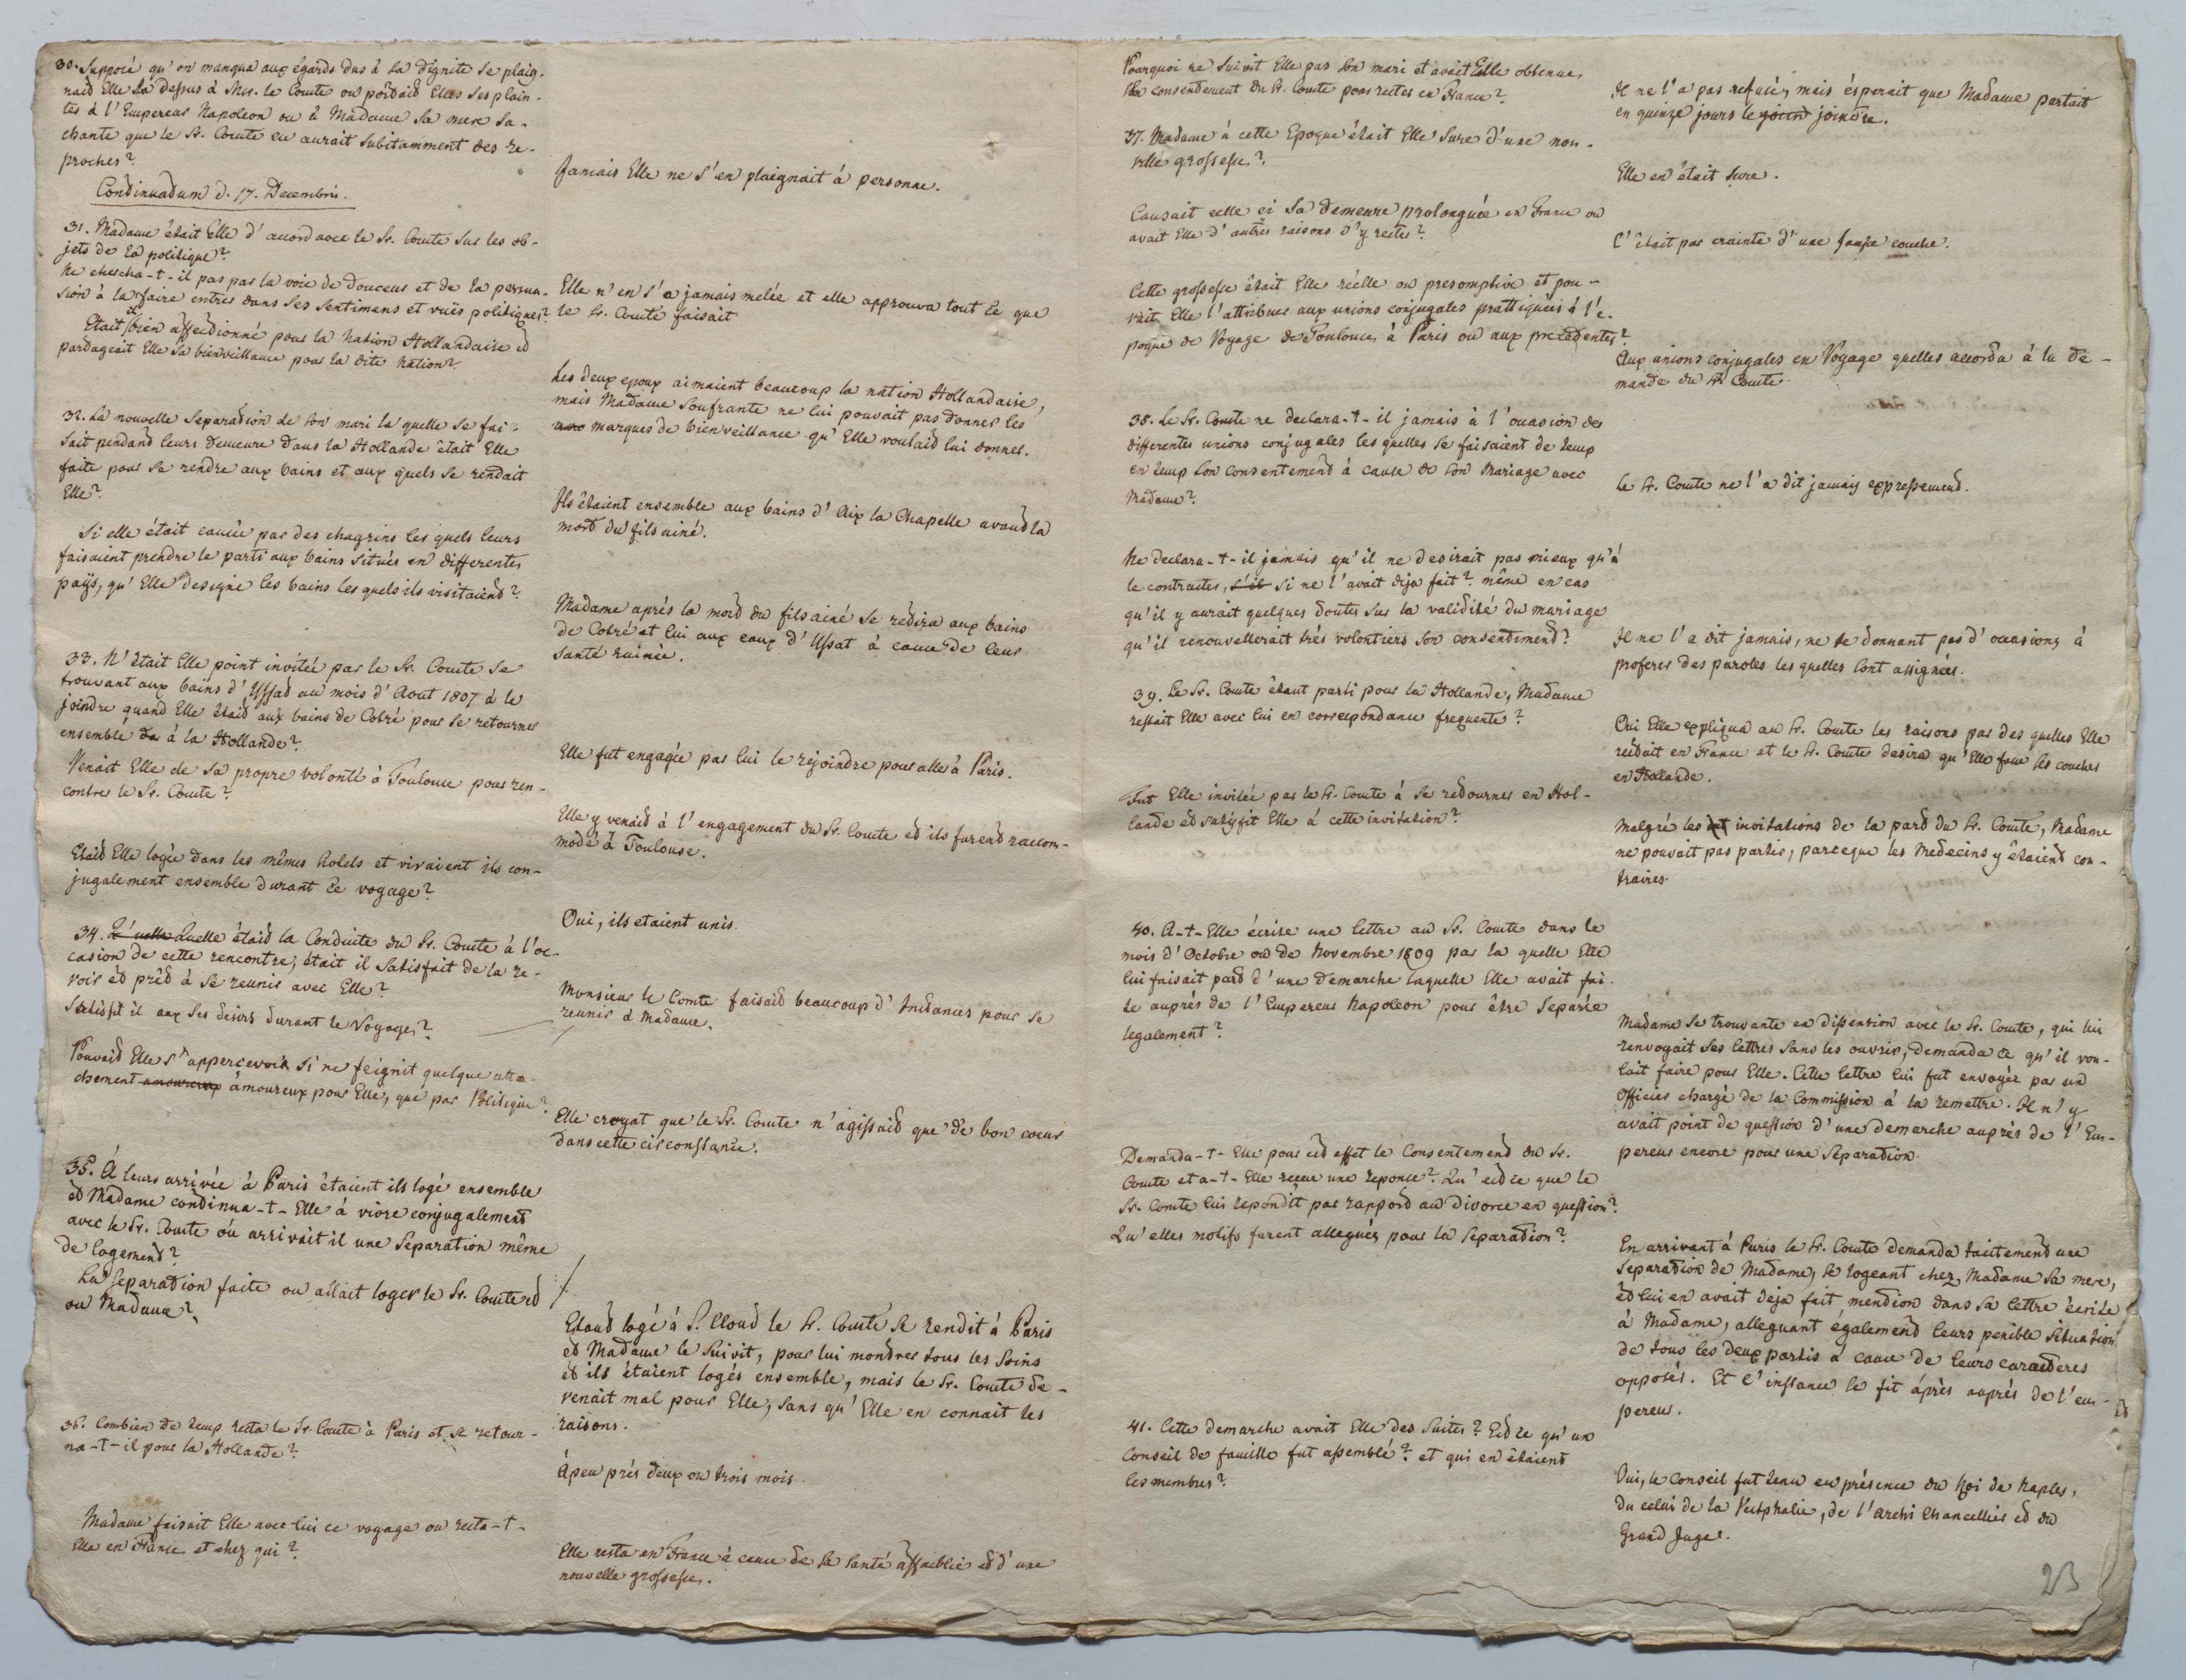 30. Supposé qu'on manqua aux égards dus à sa dignite se plaig-
naid Elle là dessus à Mr. le Comte ou pordaid Elles ses plain-
tes à l'Empereur Napoleon ou à Madame sa mere sa-
chante que le Sr. Comte en aurait subitamment des re-
proches?
Jamais Elle ne s'en plaignait à personne.
Condinuadum d. 17. Decembris.
31. Madame était Elle d'accord avec le Sr. Comte sur les ob-
jets de la politique?
Ne chercha-t-il pas par la voie de douceur et de la persua-
sion à la faire entrer dans ses sentimens et vuës politiques?
Elle n'en s'a jamais melée et elle approuva tout ce que
le Sr. Comte faisait
Etait bien affecdionné pour la Nation Hollandaise ed
pardageait Elle sa bienveillance pour la dite Nation?
Les deux epoux aimaient beaucoup la nation Hollandaise,
mais Madame soufrante ne lui pouvait pas donner les
marques de bienveillance qu'Elle voulaid lui donner.
32. La nouvelle Separadion de son mari la quelle se fai-
sait pendand leurs demeure dans la Hollande était Elle
faite pour se rendre aux bains et aux quels se rendait
Elle?
Ils étaient ensemble aux bains d'Aix la Chapelle avand la
mord du fils ainé.
Si elle était causée par des chagrins les quels leurs
faisaient prendre le parti aux bains situés en differentes
païjs, qu'Elle designe les bains les quels ils visitaiend?
Madame aprés la mord du fils ainé se redira aux bains
de Cotré et lui aux eaux d'Ussat à cause de leur
santé ruinée.
33. N'était Elle point invitée par le Sr. Comte se
trouvant aux bains d'Ussad au mois d'Aout 1807 à le
joindre quand Elle étaid aux bains de Cotré pour se retourner
ensemble da à la Hollande?
Elle fut engagée par lui le rejoindre pour aller à Paris.
Venait Elle de sa propre volonté à Toulouse pour ren-
contrer le Sr. Comte?
Elle y venaid à l'engagement du Sr. Comte ed ils furend raccom-
modé à Toulouse.
Etaid Elle logée dans les mêmes hotels et vivaient ils con-
jugalement ensemble durant ce voyage?
Oui, ils etaient unis.
34. Quelle étaid la Conduite du Sr. Comte à l'oc-
casion de cette rencontre, était il satisfait de la re-
voir ed prêd à se reunir avec Elle?
Satisfit il aux ses desirs durant le Voyage?
Monsieur le Comte faisaid beaucoup d'Instances pour se
reunir à Madame.
Pouvaid Elle s'appercevoir si ne feignit quelque atta-
chement amoureux amoureux pour Elle, que par Politique?
Elle croyat que le Sr. Comte n'agissaid que de bon coeur
dans cette circonstance.
35. A leurs arrivée à Paris étaient ils logé ensemble
ed Madame condinua-t-Elle à vivre conjugalement
avec le Sr. Comte ou arrivait il une Separation même
de logement?
La separadion faite ou allait loger le Sr. Comte ed
ou Madame?
Etand logé à S. Cloud le Sr. Comte se rendit à Paris
ed Madame le suivit, pour lui mondrer tous les soins
ed ils étaient logés ensemble, mais le Sr. Comte de-
venait mal pour Elle, sans qu'Elle en connait les
raisons.
36. Combien de temp resta le Sr. Comte à Paris et se retour-
na-t-il pour la Hollande?
Apeu prés deux ou trois mois.
Madame faisait Elle avec lui ce voyage ou resta-t-
Elle en France et chez qui?
Elle resta en France à cause de sa santé affaiblie ed d'une
nouvelle grossesse.
Pourquoi ne suivit Elle pas son mari et avait Elle obtenue
son consendement du Sr. Comte pour rester en France?
Il ne l'a pas refusée, mais ésperait que Madame pertait
en quinze jours le joind joindre.
37. Madame à cette Epoque était Elle sure d'une nou-
velle grossesse?
Elle en était sure.
Causait celle ci sa demeure prolonguée en France ou
avait Elle d'autres raisons d'y rester?
C'était par crainte d'une fausse couche.
Cette grossesse était Elle réelle ou presomptive et pou-
vait Elle l'attribuer aux unions conjugales prattiquées á l'é-
poque de Voyage de Toulouse à Paris ou aux precedentes?
Aux unions conjugales en Voyage quelles accorda à la de-
mande du Sr. Comte.
38. Le Sr. Comte ne declara-t-il jamais à l'ocasion des
differentes unions conjugales les quelles se faisaient de temp
en temp son consentemend à cause de son Mariage avec
Madame?
Le Sr. Comte ne l'a dit jamais expressemend.
Ne declara-t-il jamais qu'il ne desirait pas mieux qu'à
le contracter, s'il si ne l'avait deja fait? même en cas
qu'il y aurait quelques doutes sur la validité du mariage
qu'il renouvellerait trés volontiers son consendimend?
Il ne l'a dit jamais, ne se donnant pas d'occasions à
proferer des paroles les quelles sont assignées.
39. Le Sr. Comte étant parti pour la Hollande, Madame
restait Elle avec lui en correspondance frequente?
Oui Elle expliqua au Sr. Comte les raisons par des quelles Elle
restait en France et le Sr. Comte desira qu'Elle fasse ses couches
en Hollande.
Fut Elle invitée par le Sr. Comte à se redourner en Hol-
lande ed satisfit Elle à cette invitation?
Malgré les invitations de la pard du Sr. Comte, Madame
ne pouvait pas partir, parceque les Medecins y étaiend con-
traires.
40. A-t-Elle écrise une lettre au Sr. Comte dans le
mois d'Octobre ou de Novembre 1809 par la quelle Elle
lui faisait pard d'une demarche laquelle Elle avait fai-
te auprés de l'Empereur Napoleon pour être separée
legalement?
Madame se trouvante en dissension avec le Sr. Comte, qui lui
renvoyait ses lettres sans les ouvrir, demanda ce qu'il vou-
lait faire pour Elle. Cette lettre lui fut envoyée par un
Officier chargé de la Commission à la remettre. Il n'y
avait point de question d'une demarche auprès de l'Em-
pereur encore pour une Séparadion.
Demanda-t-Elle pour ced effet le Consentemend du Sr.
Comte et a-t-Elle recue une reponce? Qu'ed ce que le
Sr. Comte lui repondit par rappord au divorce en question?
Qu'elles motifs furent allegués pour la separadion?
En arrivant à Paris le Sr. Comte demanda tacitemend une
Separadion de Madame, se logeant chez Madame sa mere,
ed lui en avait deja fait mendion dans sa lettre écrite
à Madame, alleguant egalemend leurs penible situation
de tous les deux partis à cause de leurs caracderes
opposés. Et l'instance se fit áprès auprès de l'em-
pereur.
41. Cette demarche avait Elle des suites? Ed ce qu'un
Conseil de famille fut assemblé? et qui en étaient
les membres?
Oui, le conseil fut tenu en présence du Roi de Naples,
du celui de la Vestphalie, de l'Archi Chancellier ed du
Grand Juge.
23